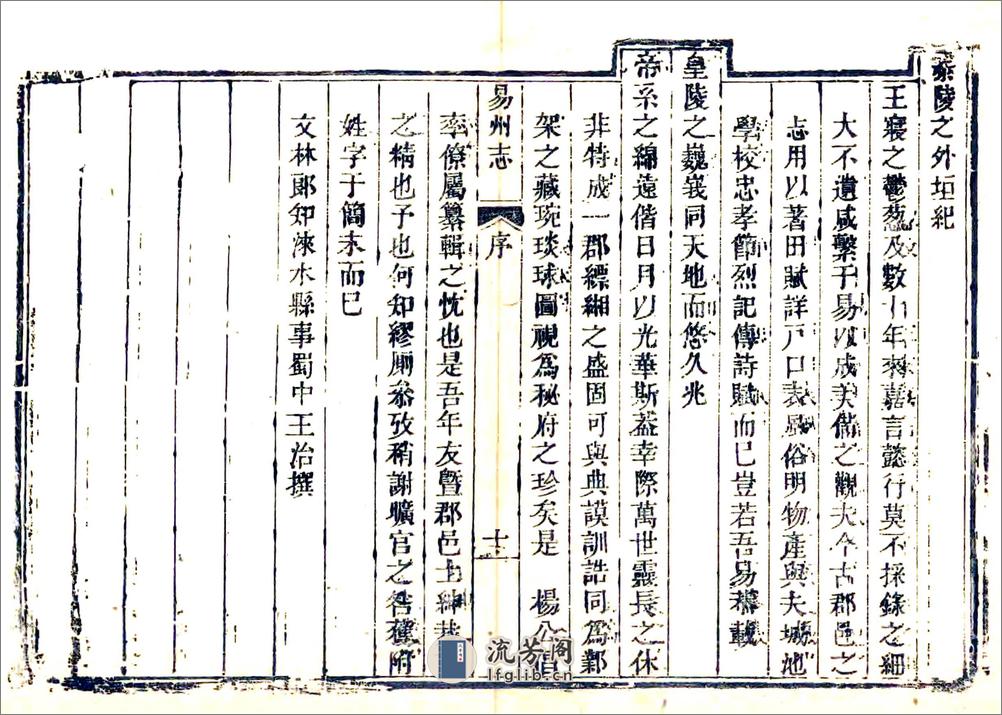 泰陵之外垣紀
王寢之鬱葱及數十年來嘉言懿行莫不採錄之細
大不遺咸繫于易以成美備之觀夫今古郡邑之
志用以著田賦詳戸口表風俗明物產與夫城池
學校忠孝節烈記傳詩賦而已豈若吾易襍載
皇陵之巍峩同天地而悠久兆
帝系之綿遠偕日月以光華斯蓋幸際萬世靈長之休
非特成一郡縹緗之盛固可與典謨訓誥同為鄴
架之藏琬琰球圖視為秘府之珍矣是 楊公倡
易州志 序 十二
率僚屬纂輯之忱也是吾年友暨郡邑士紳
之精也予也何知繆厠叅攷稍謝曠官之咎竊附
姓字于簡末而已
文林郎知淶水縣事蜀中王治撰
流芳阁
lfglib.cn